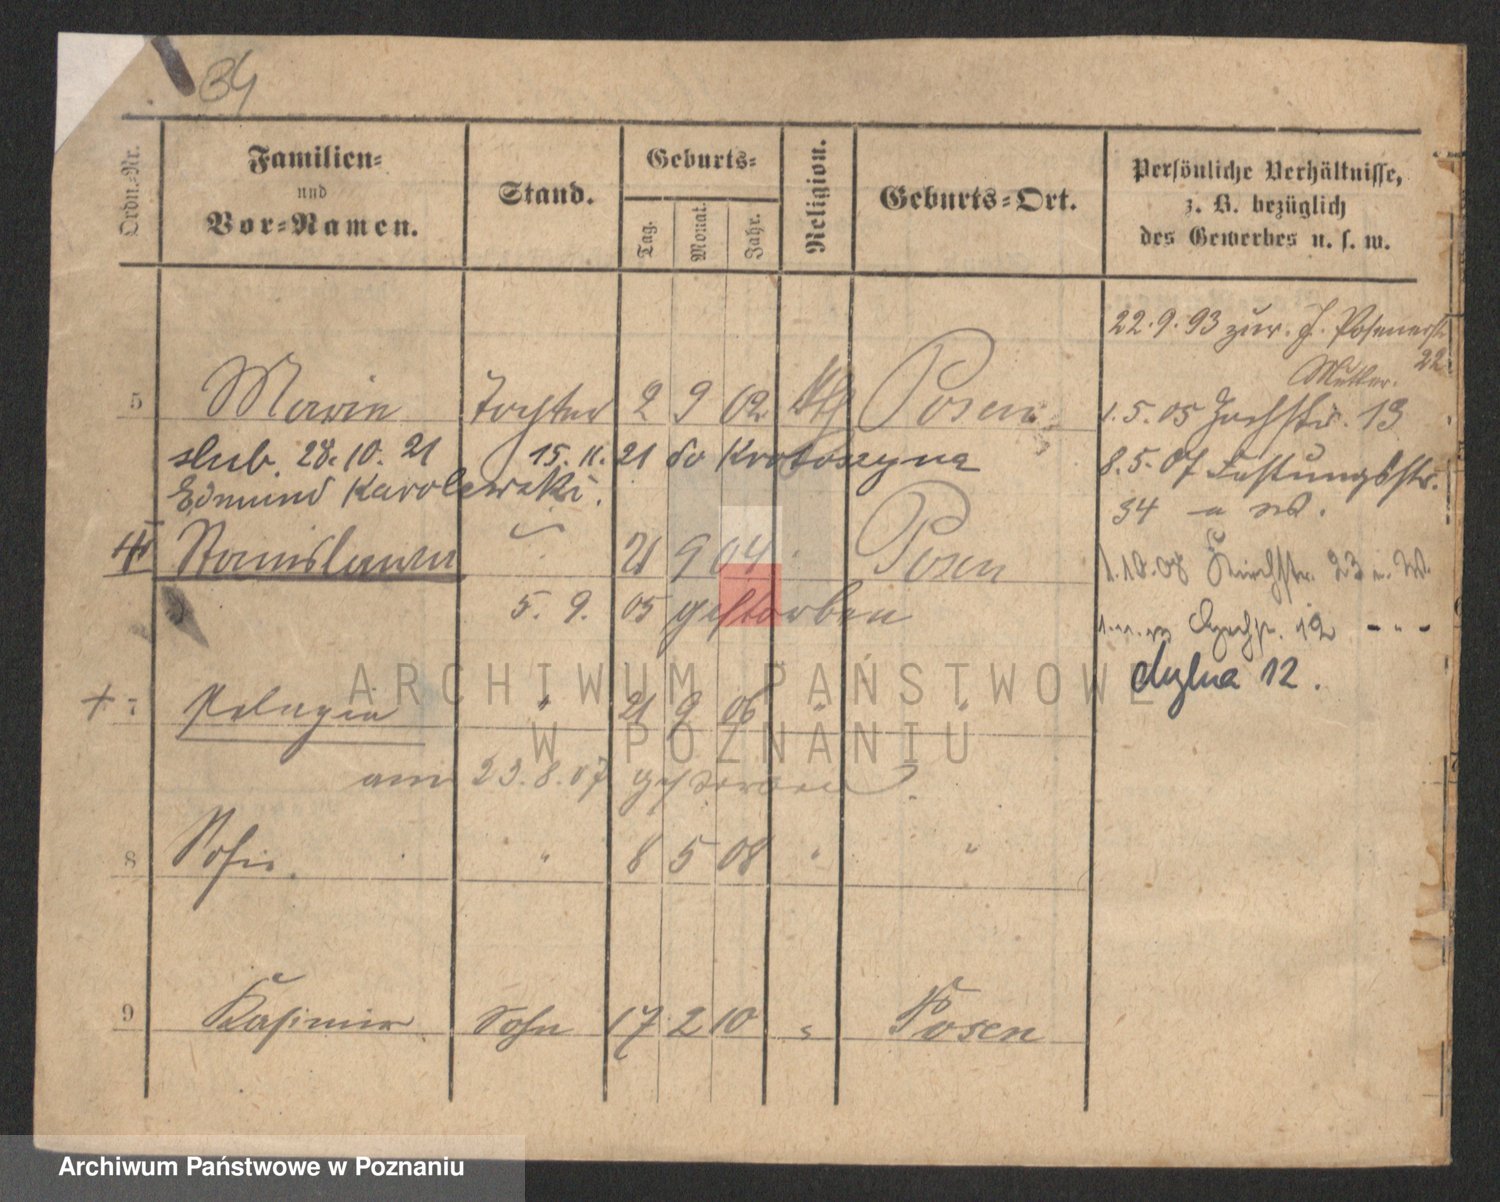 34
Ordn.-Nr.
Familien-
und
Vor-Namen.
Stand.
Geburts-
Tag.
Monat.
Jahr.
Religion.
Geburts-Ort.
Persönliche Verhältnisse,
z. B. bezüglich
des Gewerbes u. s. w.
22.9.93 zur. Posenerstr.
22
Mutter.
5 Marie Tochter 2 9 02 kth Posen
1.5.05 13
slub. 28.10.21 15.11.21 do Krotoszyna
8.5.07 Festungsstr.
Edmund Karolewski.
34
Stanislawa 21 9 04 Posen
1.10.08 23
5.9.05 gestorben
12
dylna 12.
+ 7 Pelagia " 21 9 06 " "
am 23.8.07 gestorben
8 Sofie. " 8 5 08 " "
9 Kasimir Sohn 17 2 10 " Posen
ARCHIWUM PAŃSTWOWE
W POZNANIU
Archiwum Państwowe w Poznaniu